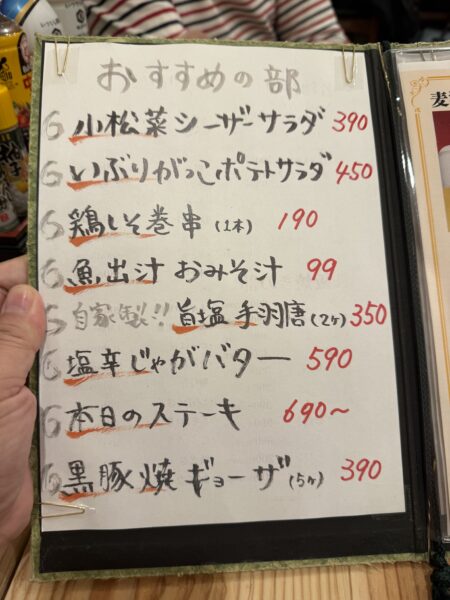 おすすめの部
小松菜シーザーサラダ 390
いぶりがっこポテトサラダ 450
鶏しそ巻串(1本) 190
魚出汁 おみそ汁 99
自家製!! 旨塩 手羽唐(2ヶ) 350
塩辛じゃがバター 590
本日のステーキ 690~
黒豚焼ギョーザ(5ヶ) 390
麦